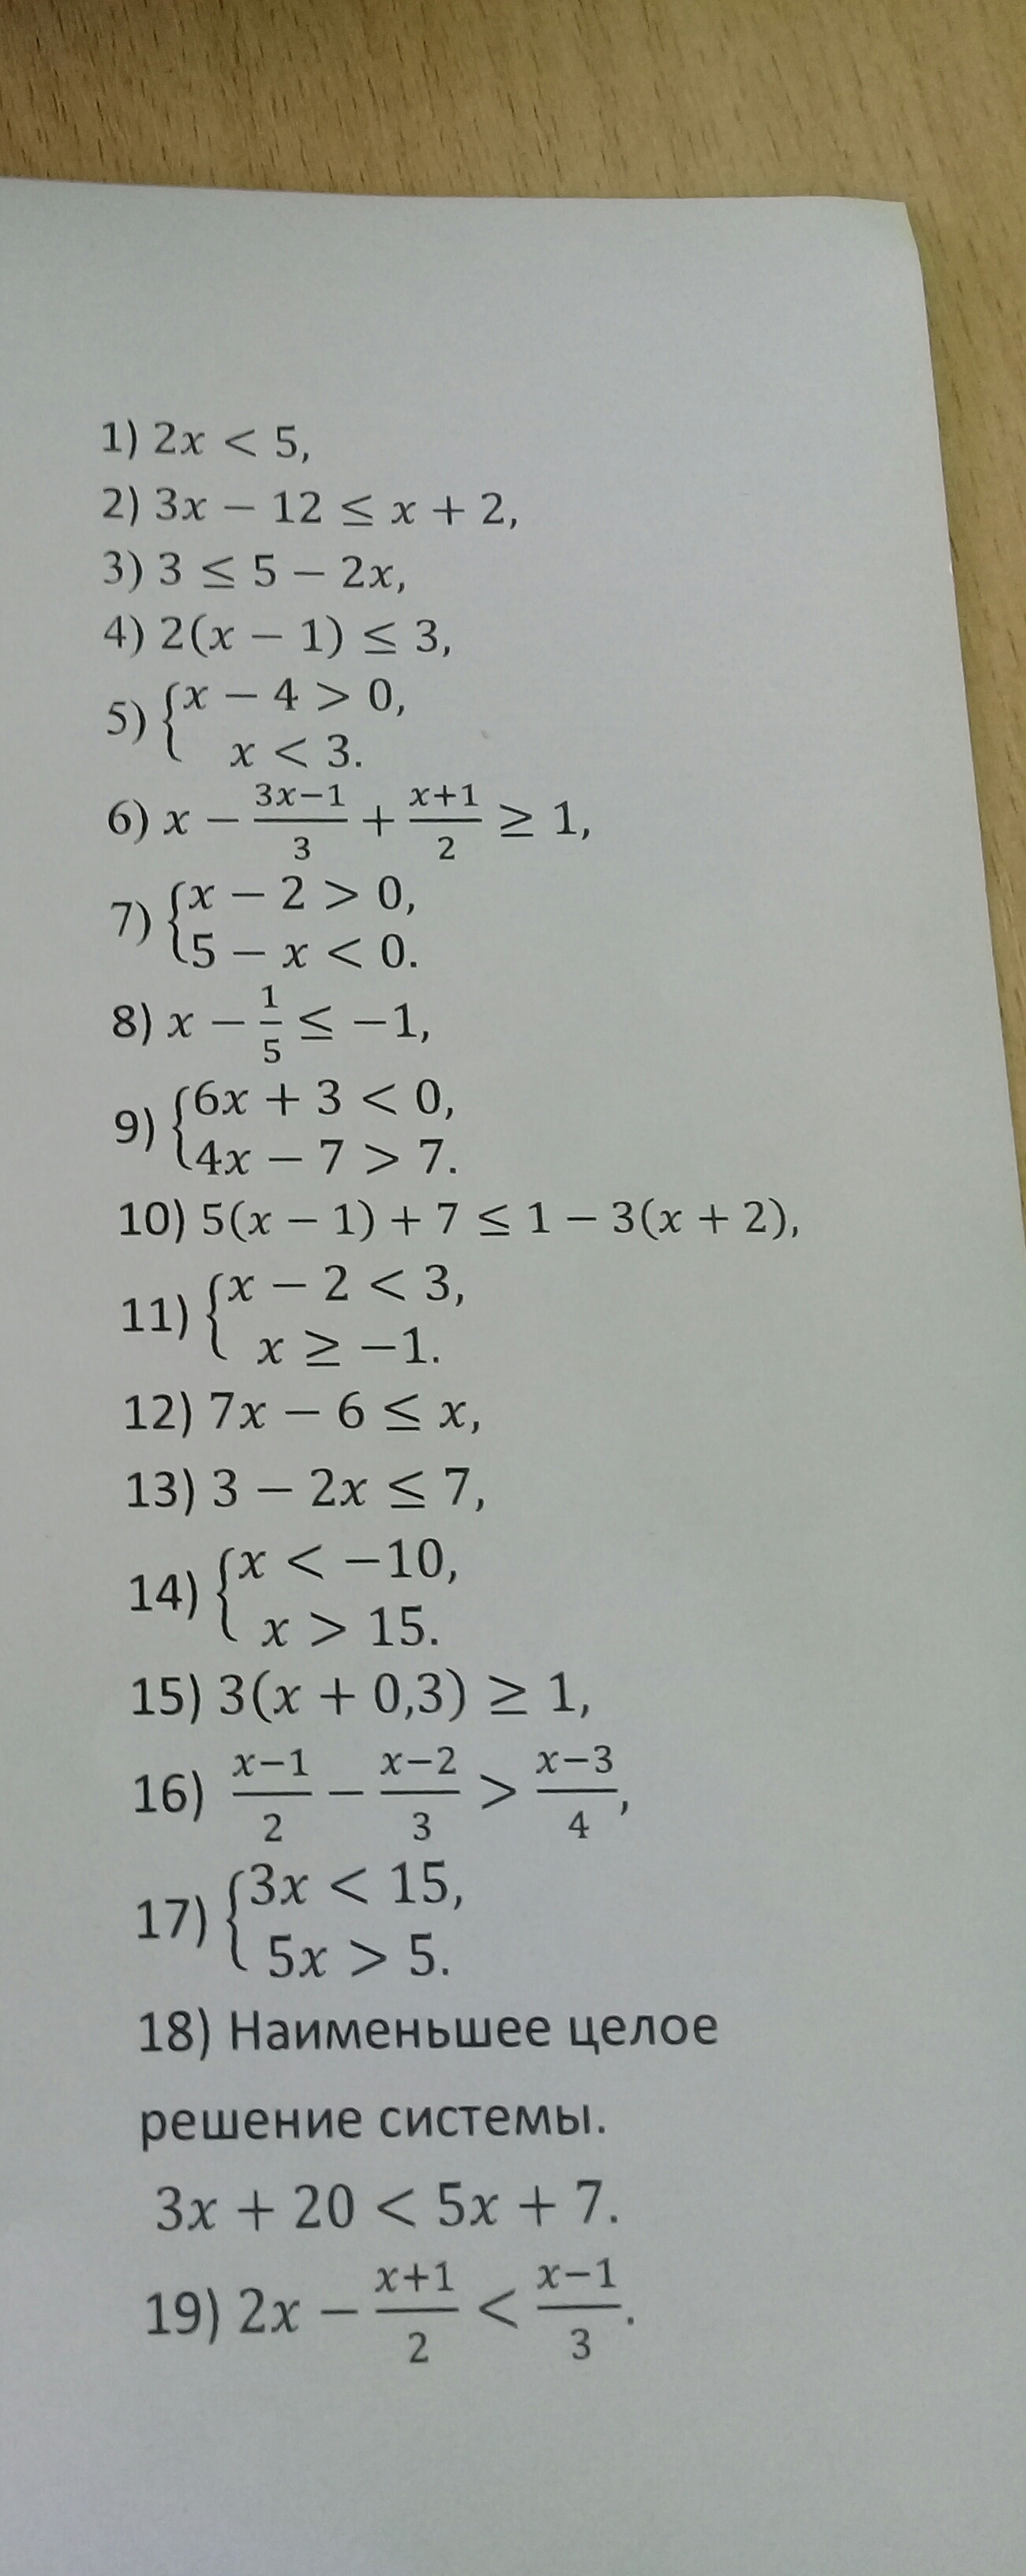 1) 2x < 5,
2) 3x − 12 ≤ x + 2,
3) 3 ≤ 5 − 2x,
4) 2(x − 1) ≤ 3,
5) {x − 4 > 0,
x < 3.
6) x − (3x−1)/3 + (x+1)/2 ≥ 1,
7) {x − 2 > 0,
5 − x < 0.
8) x − 1/5 ≤ −1,
9) {6x + 3 < 0,
4x − 7 > 7.
10) 5(x − 1) + 7 ≤ 1 − 3(x + 2),
11) {x − 2 < 3,
x ≥ −1.
12) 7x − 6 ≤ x,
13) 3 − 2x ≤ 7,
14) {x < −10,
x > 15.
15) 3(x + 0,3) ≥ 1,
16) (x−1)/2 − (x−2)/3 > (x−3)/4,
17) {3x < 15,
5x > 5.
18) Наименьшее целое
решение системы.
3x + 20 < 5x + 7.
19) 2x − (x+1)/2 < (x−1)/3.